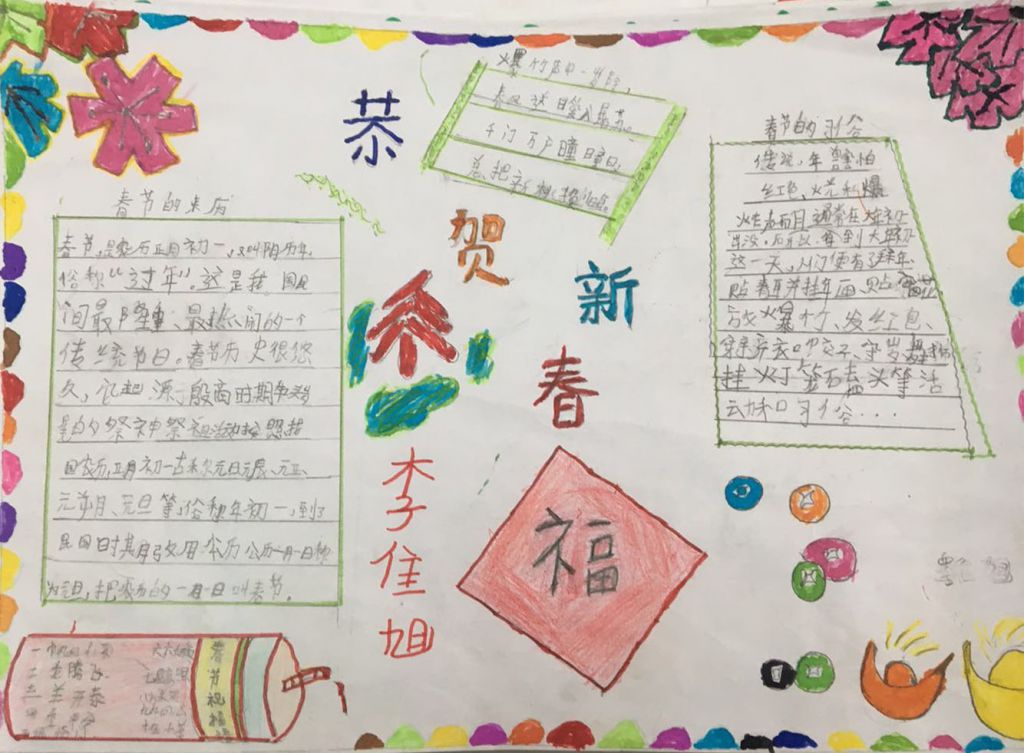 恭
贺
新
春
李佳旭
福
爆竹声中一岁除,
春风送日暖入屠苏。
千门万户瞳瞳日,
总把新桃换旧符。
春节的来历
春节,是农历正月初一,又叫阴历年,
俗称“过年”。这是我国民
间最隆重、最热闹的一个
传统节日。春节历史很悠
久,它起源于殷商时期年头岁
尾的祭神祭祖活动按照我
国农历,正月初一古称元日元辰、元正、
元朔、元旦等,俗称年初一,到了
民国时其月改用公历公历一月一日称
为元旦,把农历的一月一日叫春节。
春节的习俗
传说,年兽害怕
红色、火光和爆
炸声而且通常在大年初
出没,所以,每到大年初
这一天,人们便有了拜年、
贴春联挂年画、贴窗花
放爆竹、发红包、
穿新衣吃饺子、守岁舞狮
挂灯笼磕头等活
动和习俗....
一帆风顺
二龙腾飞
三羊开泰
四季平安
春节祝福